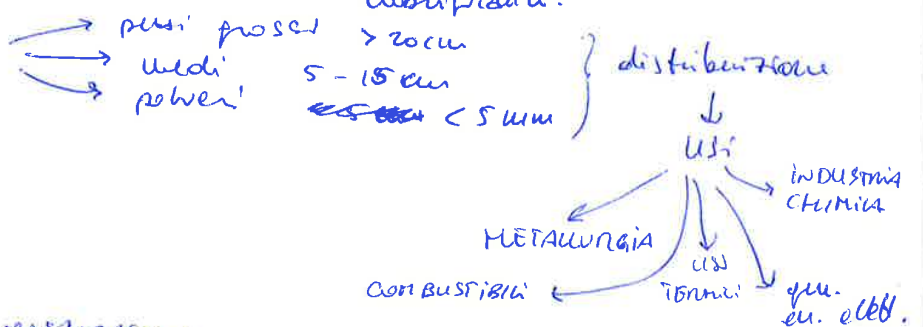 pezzi grossi > 20 cm
medi 5 - 15 cm
polveri < 5 mm
distribuzione
USI
INDUSTRIA
CHIMICA
METALLURGIA
USI
TERMICI
COMBUSTIBILI
gen.
en. elett.